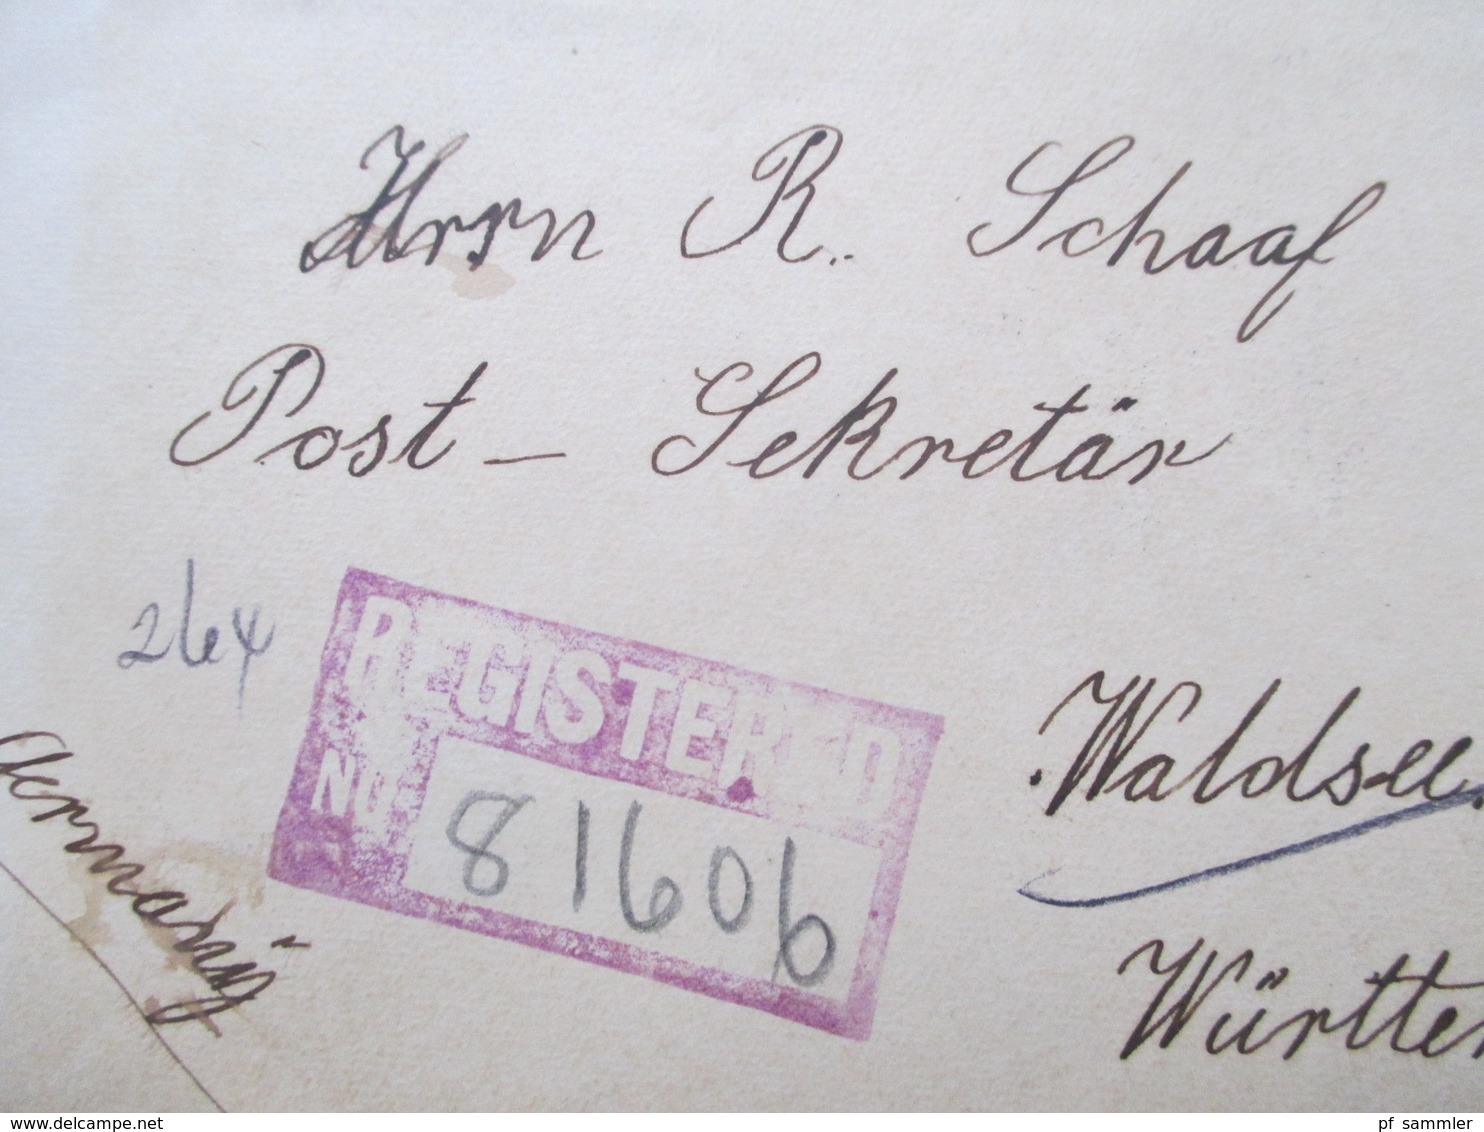 Herrn R. Schaaf
Post - Sekretär
264
REGISTERED
NO
81606
Waldsee.
Württem
Germany
www.delcampe.net
pf_sammler